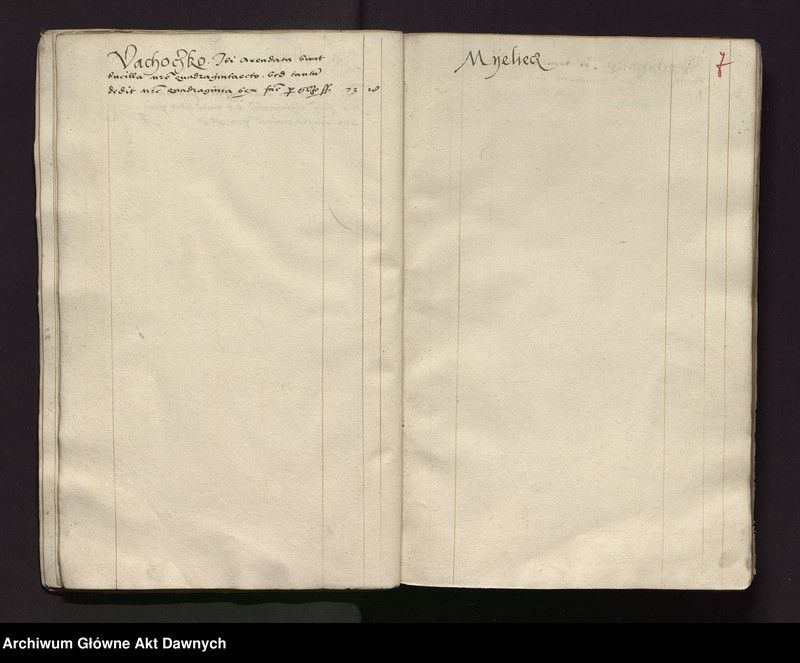 Vachoczko. Ibi arendata sunt
ducilla mrē quadragintaocto. sed tantū
dedit mrē quadraginta sex 73 18
Myelieck
7
Archiwum Główne Akt Dawnych